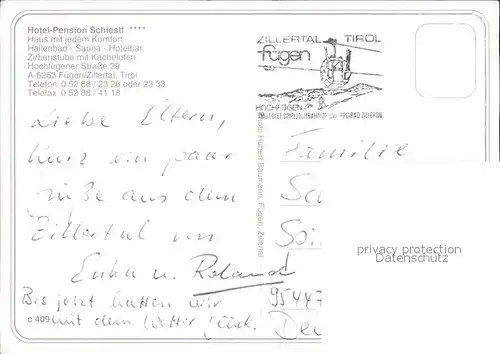 Hotel-Pension Schiestl ****
Haus mit jedem Komfort
Hallenbad - Sauna - Hotelbar
Zirbenstube mit Kachelofen
Hochfügener Straße 29
A-6263 Fügen/Zillertal, Tirol
Telefon 0 52 88 / 23 26 oder 23 33
Telefax 0 52 88 / 41 18
ZILLERTAL TIROL
fügen
HOCHFÜGEN
Liebe Eltern,
kurz ein paar
Grüße aus dem
Zillertal von
Erika u. Roland
Bis jetzt hatten wir
mit dem Wetter Glück.
c 409
Foto Hubert Baumann, Fügen, Zillertal
Familie
95447
privacy protection
Datenschutz